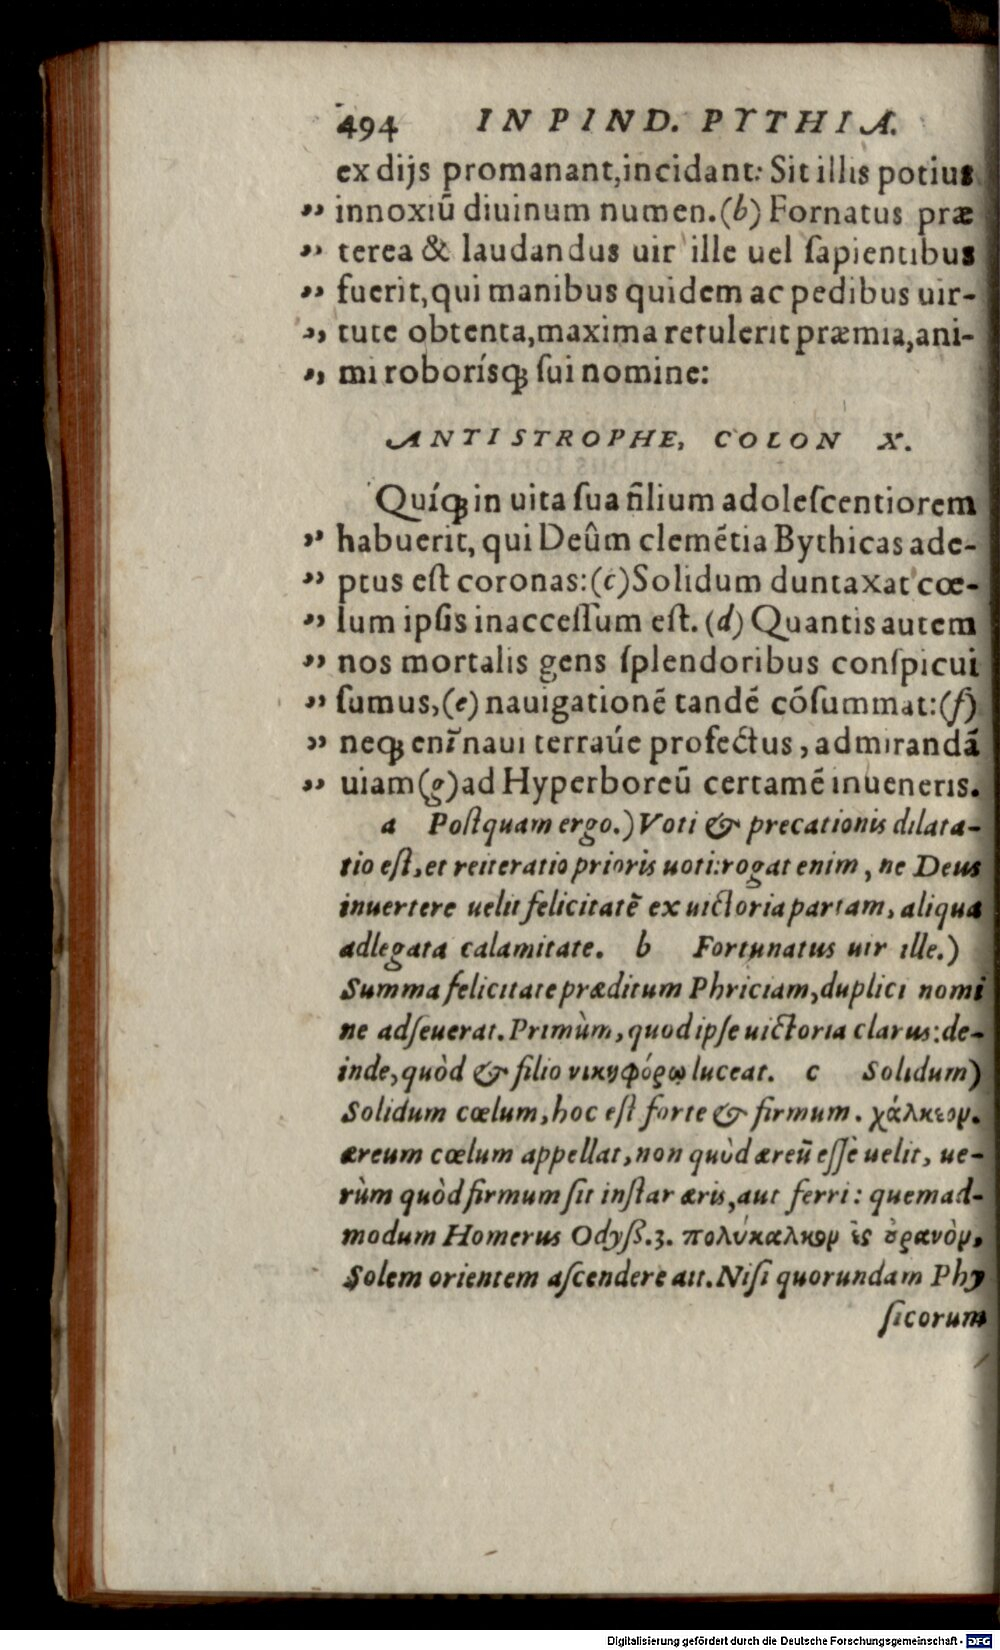 494 IN PIND. PYTHIA.
ex dijs promanant,incidant: Sit illis potius
„ innoxiū diuinum numen.(b) Fornatus præ
„ terea & laudandus uir ille uel ſapientibus
„ fuerit,qui manibus quidem ac pedibus uir-
„ tute obtenta,maxima retulerit præmia,ani-
„ mi roborísqꝫ ſui nomine:
ANTISTROPHE, COLON X.
Quíqꝫ in uita ſua filium adoleſcentiorem
„ habuerit, qui Deûm clemētia Bythicas ade-
„ ptus eſt coronas:(c)Solidum duntaxat cœ-
„ lum ipſis inacceſſum eſt. (d) Quantis autem
„ nos mortalis gens ſplendoribus conſpicui
„ ſumus,(e) nauigationē tandē cōſummat:(f)
„ neqꝫ enī naui terraúe profectus, admirandā
„ uiam(g)ad Hyperboreū certamē inueneris.
a Poſtquam ergo.) Voti & precationis dilata-
tio eſt, et reiteratio prioris uoti:rogat enim, ne Deus
inuertere uelit felicitatē ex uictoria partam, aliqua
adlegata calamitate. b Fortunatus uir ille.)
Summa felicitate præditum Phriciam,duplici nomi
ne adſeuerat. Primùm, quod ipſe uictoria clarus:de-
inde,quòd & filio νικηφόρῳ luceat. c Solidum)
Solidum cœlum, hoc eſt forte & firmum. χάλκεον.
æreum cœlum appellat, non quòd æreū eſſe uelit, ue-
rùm quòd firmum ſit inſtar æris, aut ferri: quemad-
modum Homerus Odyß.3. πολύκαλκον ἐς ȣ̓ρανὸν,
Solem orientem aſcendere ait. Niſi quorundam Phy
ſicorum
Digitalisierung gefördert durch die Deutsche Forschungsgemeinschaft - DFG